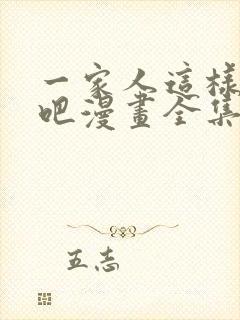 一家人這樣
吧漫畫全集
五志